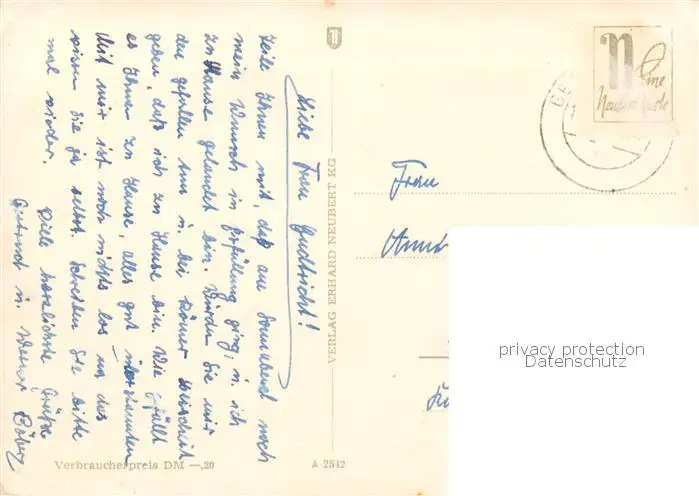 Liebe Frau Gudbricht!
Teile Ihnen mit, daß am Sonnabend noch
mein Wunsch in Erfüllung ging, u. ich
zu Hause gelandet bin. Würden Sie mir
den gefallen tun u. bei Römer bescheid
geben, daß ich zu Hause bin. Wie gefällt
es Ihnen zu Hause, alles gut überstanden
Mit mir ist noch nichts los na das
wissen Sie ja selbst. Schreiben Sie bitte
mal wieder. Viele herzlichste Grüße
Gertrud u. Werner
VERLAG ERHARD NEUBERT KG
Eine
Neubert Karte
Frau
privacy protection
Datenschutz
Verbraucherpreis DM —,20
A 2512